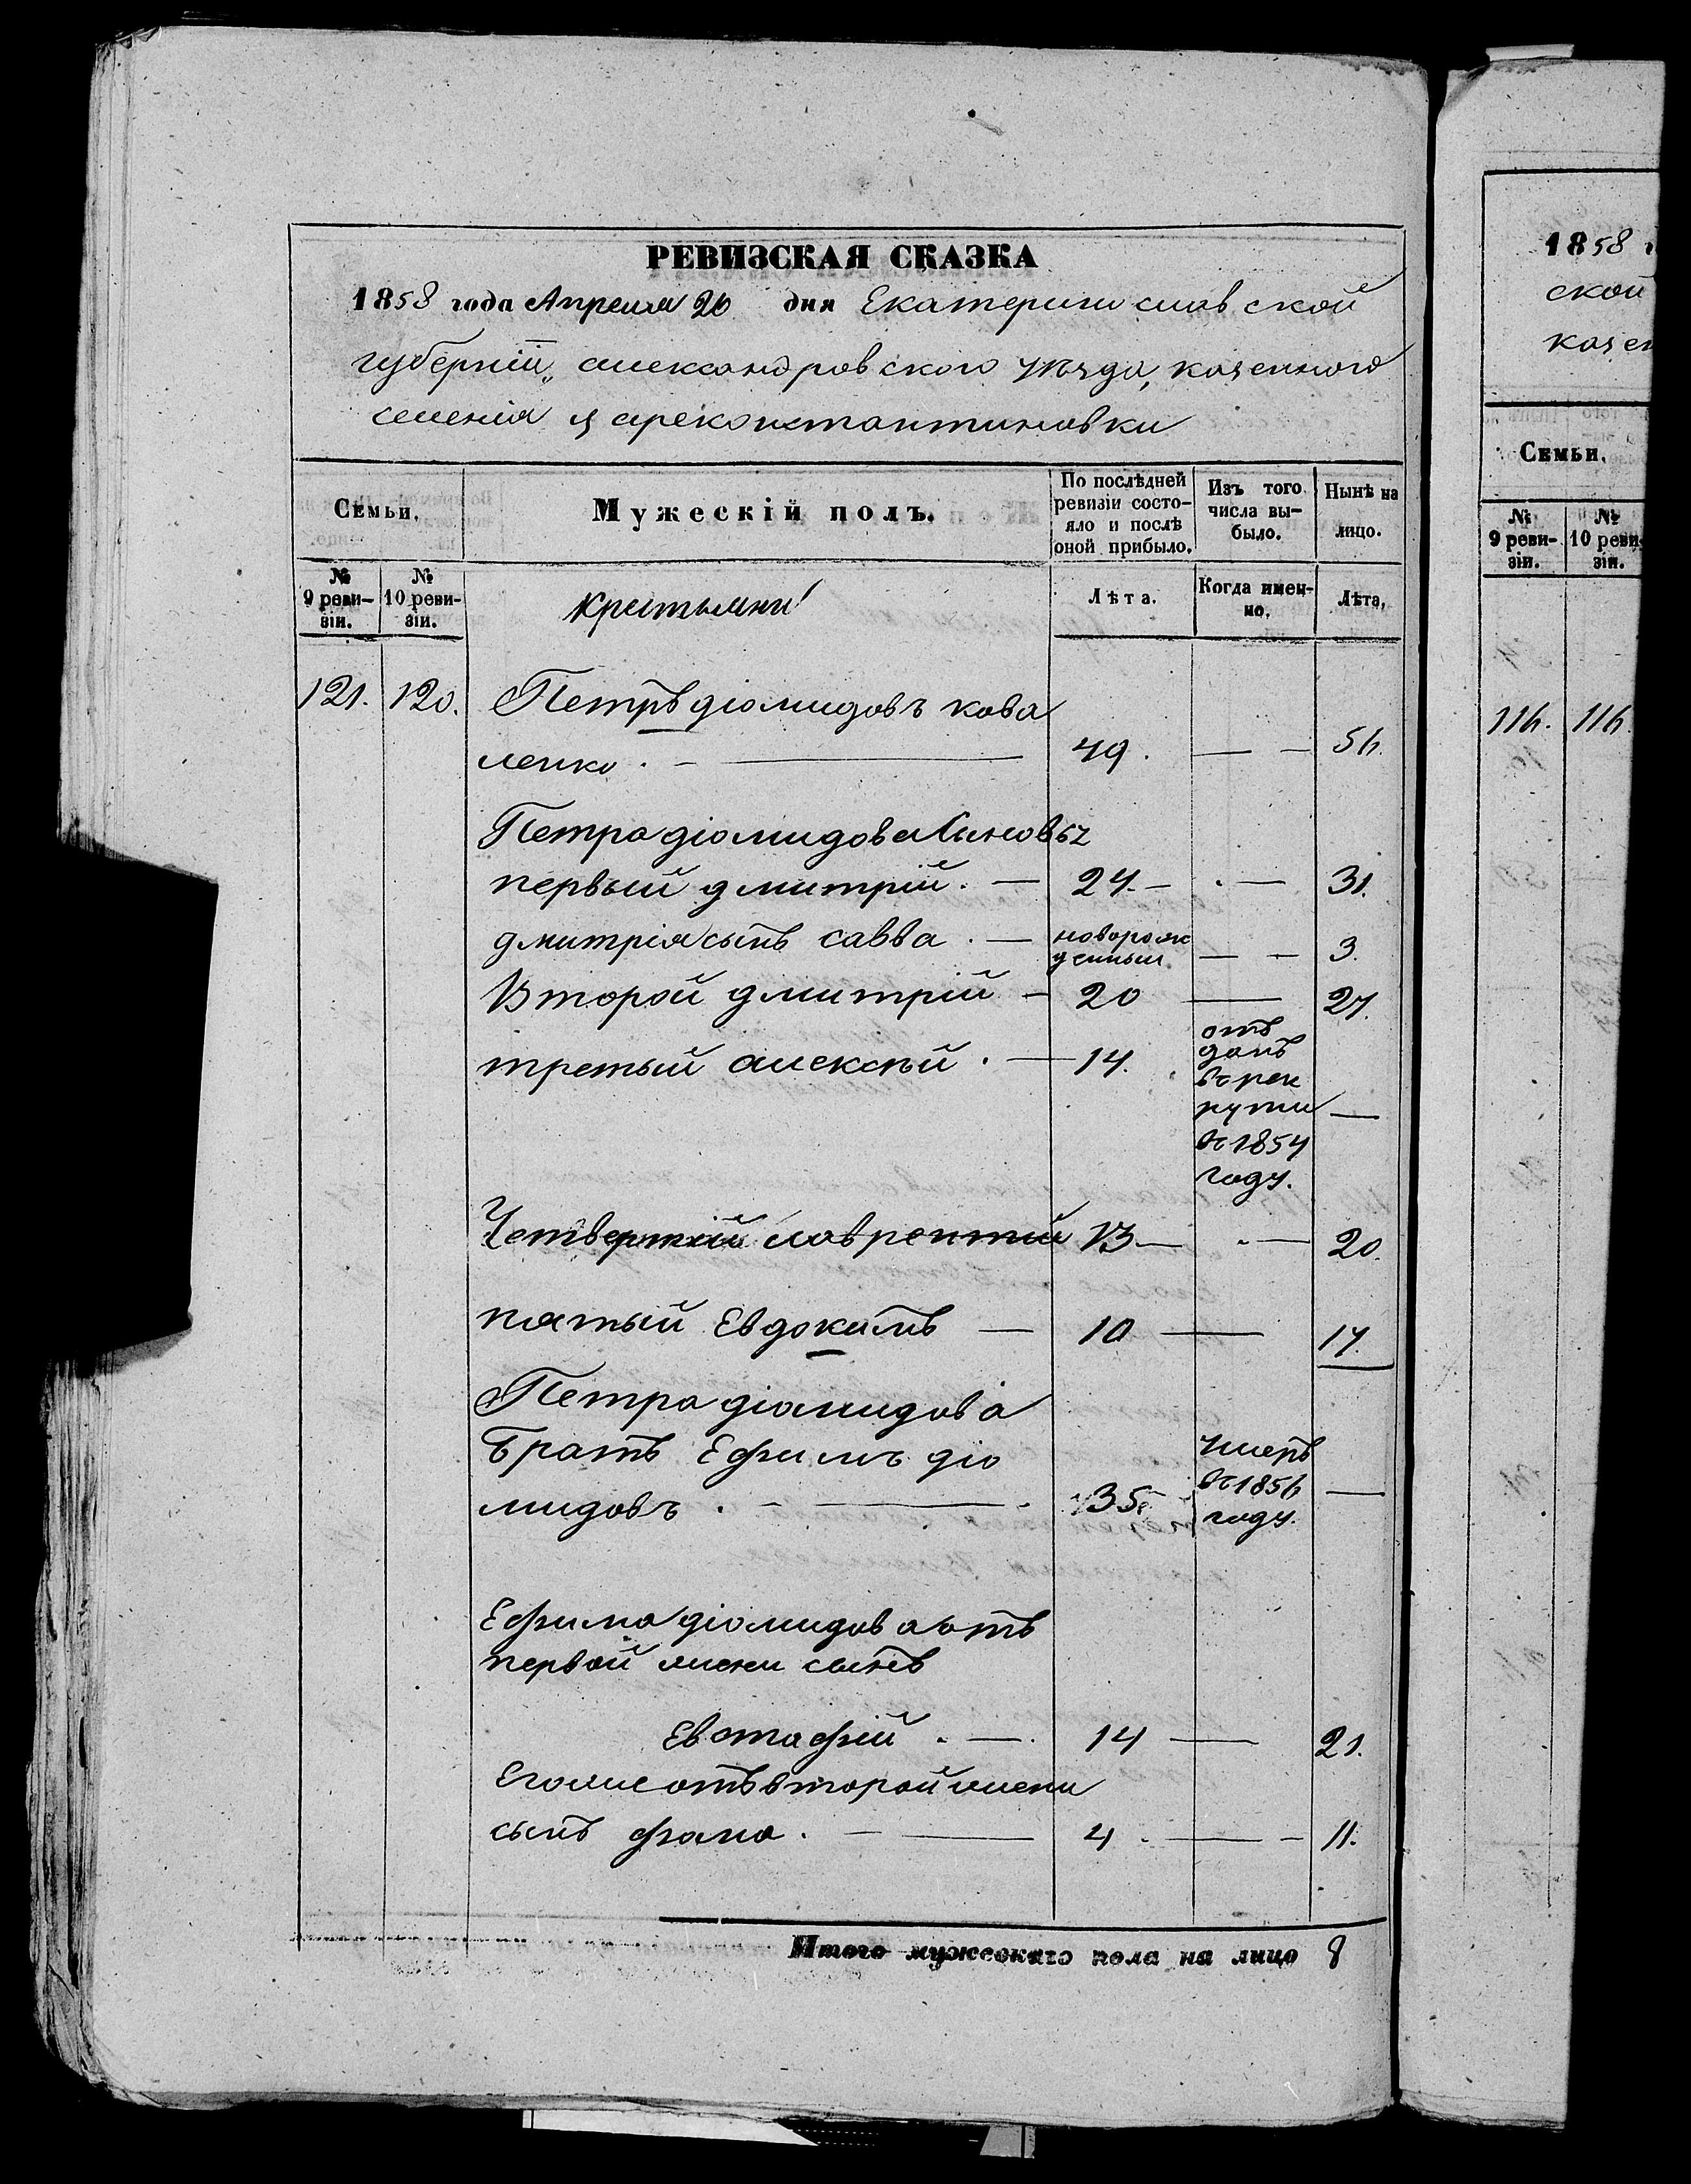 РЕВИЗСКАЯ СКАЗКА
1858 года Апреля 26 дня Екатеринославской
губерніи, александровского уѣзда, казенного
селенія цареконстантиновки
Семьи.
Мужескій полъ.
По послѣдней ревизіи состояло и послѣ оной прибыло.
Изъ того числа выбыло.
Нынѣ на лицо.
№ 9 ревизіи.
№ 10 ревизіи.
крестьяни
Лѣта.
Когда именно.
Лѣта.
121. 120. Петръ діомидовъ кова
ленко. 49. 56.
Петра діомидова Сыновья
первый дмитрій. 24. 31.
дмитрія сынъ савва. новорож
денный 3.
Второй дмитрій 20 27.
третый алексѣй. 14. отъ
данъ
въ рек
руты
въ 1854
году.
Четвертій лаврентій 13 20.
пятый Евдокимъ 10 17.
Петра діомидова
братъ Ефимъ діо
мидовъ. 35. умеръ
въ 1856
году.
Ефима діомидова отъ
первой жены сынъ
Евстафій. 14 21.
Егоже отъ второй жены
сынъ фома. 4. 11.
Итого мужескаго пола на лицо 8
1858
ской
казен
Семьи.
№ 9 ревизіи.
№ 10 ревизіи.
116. 116.